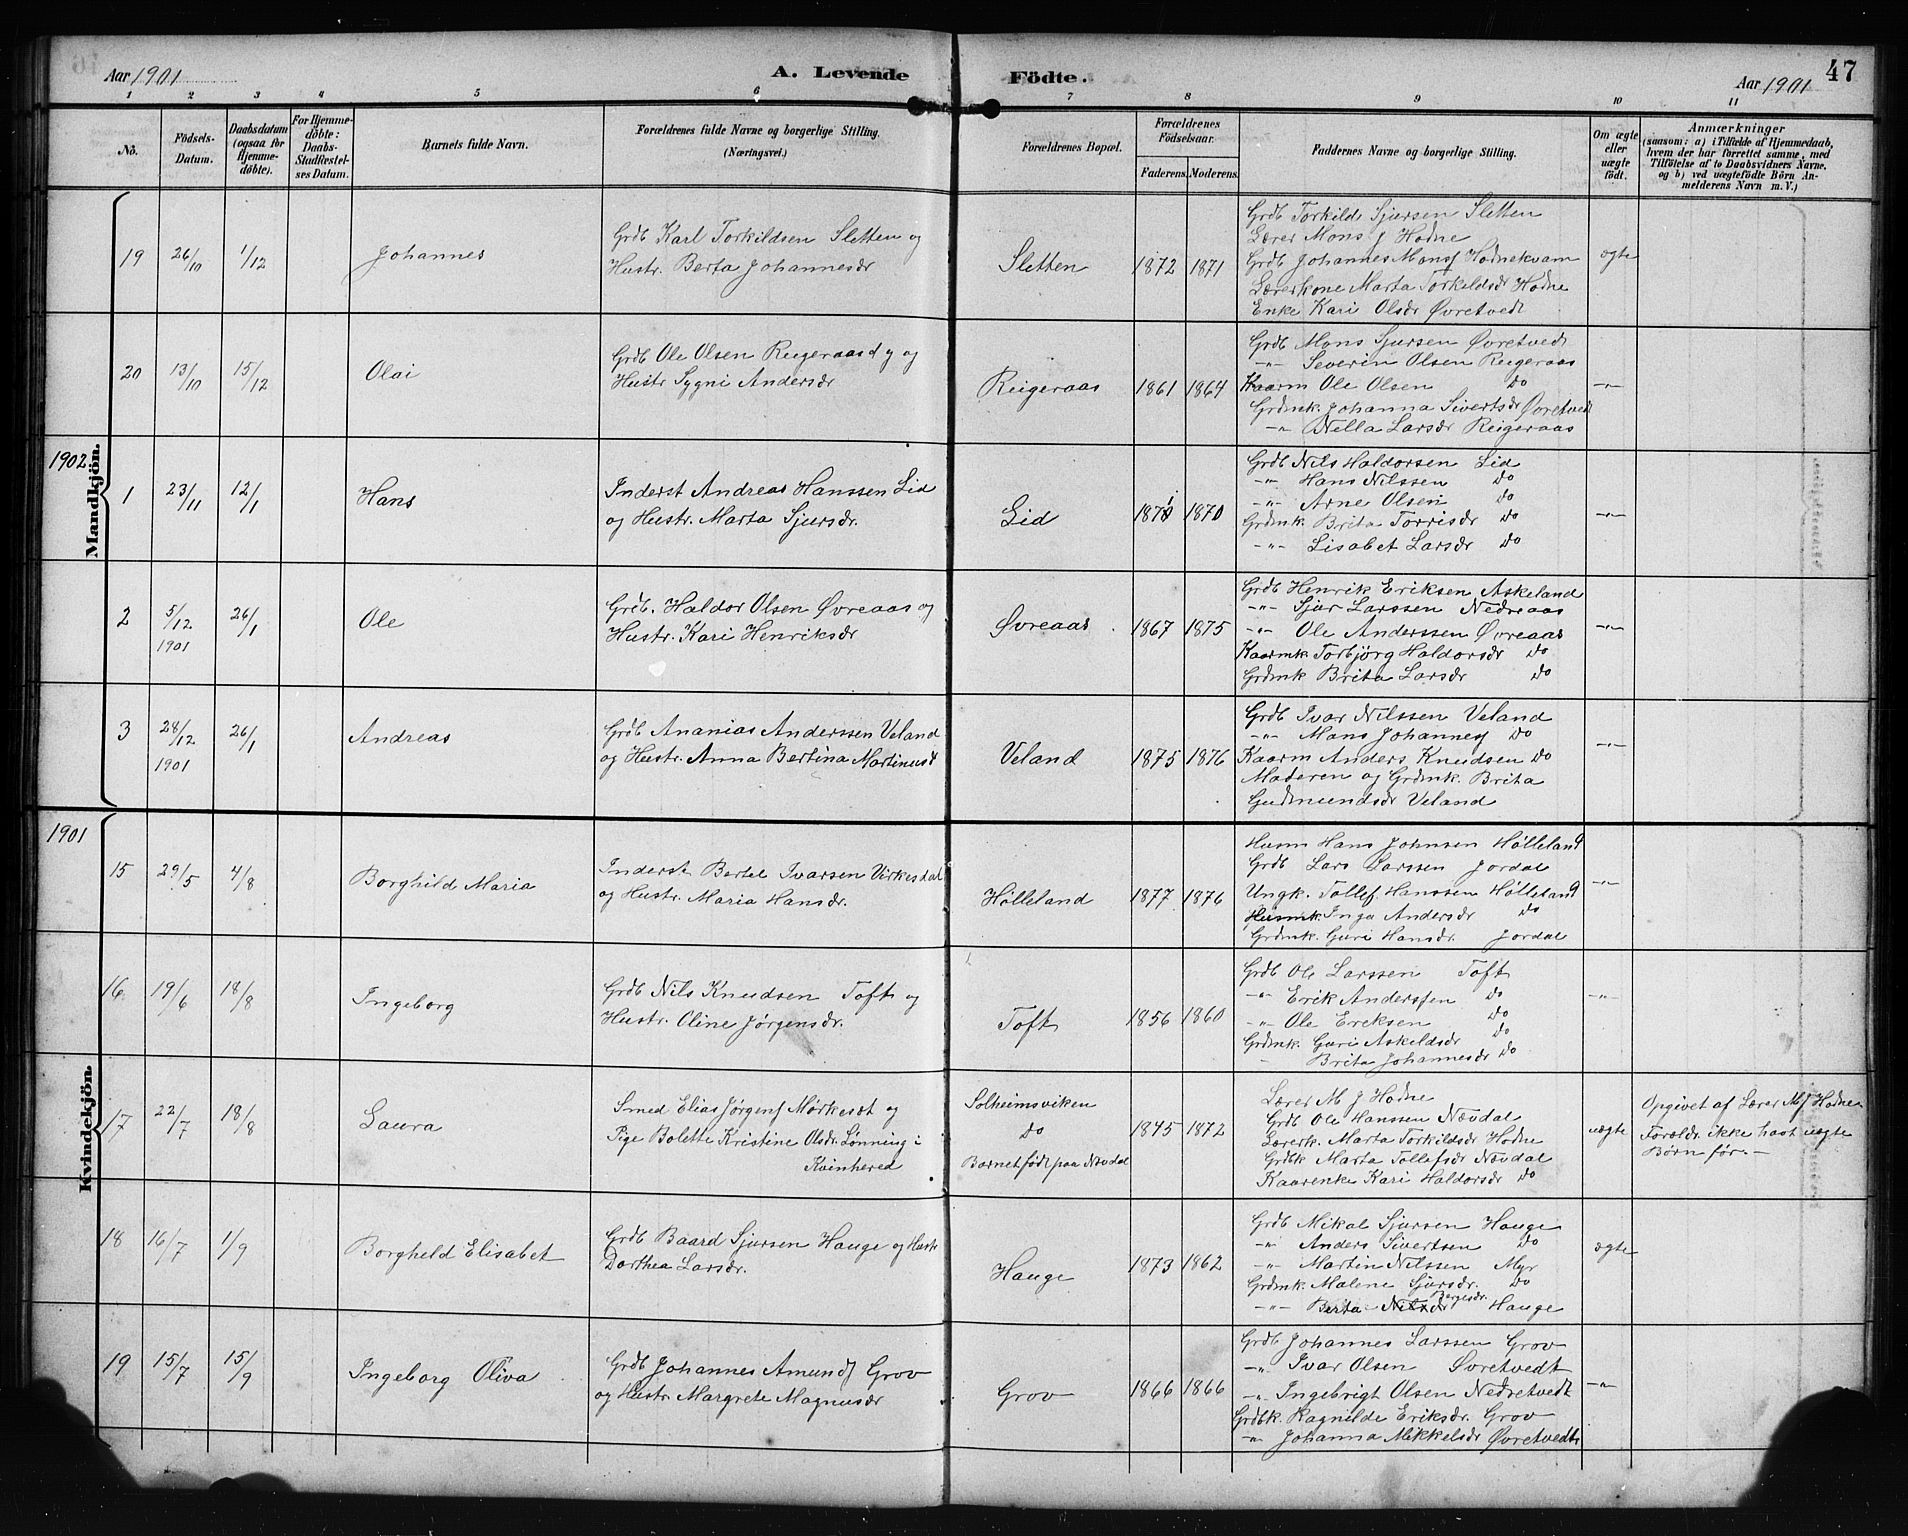 Aar 1901 A. Levende Födte. Aar 1901 47
1 2 3 4 5 6 7 8 9 10 11
No. Födsels-Datum. Daabsdatum (ogsaa for Hjemmedöbte). For Hjemmedöbte: Daabs-Stadfæstelses Datum. Barnets fulde Navn. Forældrenes fulde Navne og borgerlige Stilling. (Næringsvei.) Forældrenes Bopæl. Forældrenes Födselsaar. Faderens. Moderens. Faddernes Navne og borgerlige Stilling. Om ægte eller uægte födt. Anmærkninger (saasom: a) i Tilfælde af Hjemmedaab, hvem der har forrettet samme, med Tilföielse af to Daabsvidners Navne, og b) ved uægtefödte Börn Anmelderens Navn m. V.)
Mandkjön.
19 26/10 1/12 Johannes
Grdb Karl Torkildsen Sletten og
Hustr. Berta Johannesdr
Sletten 1872 1871
Grdb Torkild Sjursen Sletten
Lærer Mons J Hodne
Grdb Johannes Monsf Hodnekvam
Lærerkone Marta Torkildsdr Hodne
Enke Kari Olsdr Øvretvedt
ægte
20 13/10 15/12 Olai
Grdb Ole Olsen Reigeraas d y og
Hustr Sygni Andersdr
Reigeraas 1861 1864
Grdb Mons Sjursen Øvretvedt
-"- Severin Olsen Reigeraas
Kaarm Ole Olsen Do
Grdmk. Johanna Sivertsdr Øvretvedt
-"- Nella Larsdr Reigeraas
-"-
1902
1 23/11 12/1 Hans
Inderst Andreas Hanssen Lid
og Hustr. Marta Sjursdr.
Lid 1871 1870
Grdb Nils Haldorsen Lid
-"- Hans Nilssen Do
-"- Arne Olsen Do
Grdmk. Brita Torrisdr Do
-"- Lisabet Larsdr Do
-"-
2 5/12 1901 26/1 Ole
Grdb. Haldor Olsen Øvreaas og
Hustr. Kari Henriksdr
Øvreaas. 1867 1875
Grdb Henrik Eriksen Askeland
-"- Sjur Larssen Nedreaas
-"- Ole Anderssen Øvreaas
Kaarmk Torbjørg Haldorsdr Do
Grdmk Brita Larsdr Do
-"-
3 28/12 1901 26/1 Andreas
Grdb Ananias Anderssen Veland
og Hustr. Anna Bertina Martinusd
Veland 1875 1876
Grdb Ivar Nilssen Veland
-"- Mons Johannesf Do
Kaarm Anders Knudsen Do
Moderen og Grdmk. Brita
Gudmundsdr Veland
-"-
1901
Kvindekjön.
15 29/5 4/8 Borghild Maria
Inderst Bertel Ivarsen Virkesdal
og Hustr. Maria Hansdr.
Hølleland 1877 1876
Husm Hans Johnsen Hølleland
Grdb Lars Larssen Jordal
Ungk. Tollef Hanssen Hølleland
Husmk. Inga Andersdr Do
Grdmk. Guri Hansdr. Jordal
-"-
16 19/6 18/8 Ingeborg
Grdb Nils Knudsen Toft og
Hustr. Oline Jørgensdr.
Toft 1856 1860
Grdb Ole Larssen Toft
-"- Erik Andersfen Do
-"- Ole Ereksen Do
Grdmk. Guri Askeldsdr Do
- Brita Johannesdr Do
-"-
17 22/7 18/8 Laura
Smed Elias Jørgensf Mørkesæt og
Pige Bolette Kristine Olsdr. Lønning i
Kvinhered
Solheimsviken
Do
Barnet født paa Nøvdal
1845 1872
Lærer M J Hodne
Grdb Ole Hanssen Nøvdal
Lærerk. Marta Torkildsdr Hodne
Grdbk Marta Tollefsdr Nøvdal
Kaarenke Kari Haldorsdr Do
uægte
Opgivet af Lærer M J Hodne.
Foræld. ikke havt uægte
Børn før. -
18 16/7 1/9 Borgheld Elisabet
Grdb Baard Sjursen Hauge og Hustr
Dorthea Larsdr.
Hauge 1873 1862
Grdb Mikal Sjursen Hauge
-"- Anders Sivertsen Do
-"- Martin Nilssen Myr
Grdmk. Malene Sjursdr. Do
-"- Berta Nilsdr Børgesdr. Hauge
ægte
19 15/7 15/9 Ingeborg Oliva
Grdb Johannes Amundf Grov
og Hustr. Margrete Magnusdr
Grov 1866 1866
Grdb Johannes Larssen Grov
-"- Ivar Olsen Øvretvedt
-"- Ingebrigt Olsen Nedretvedt
Grdbk. Ragnilde Eriksdr. Grov
-"- Johanna Mikkelsdr Øvretvedt
-"-